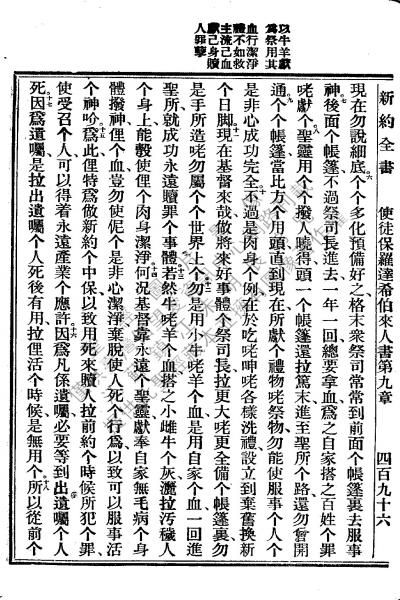 新約全書 使徒保羅達希伯來人書第九章 四百九十六
以牛羊獻
爲祭用其
血行潔淨
禮不如救
主流己血
獻己身贖
人罪孽
現在勿說細底个、六个多化預備好之格末衆祭司常常到前面个帳篷裏去服事
神、七後面个帳篷不過祭司長進去一年一回總要拿血爲之自家搭之百姓个罪
咾獻、八个聖靈用个个撥人曉得頭一个帳篷還拉篤末進至聖所个路還勿曾開
通个、九个个帳篷當比方个用頭直到現在所獻个禮物咾祭物勿能使服事个人个
是非心成功完全、十不過是肉身个例在於吃咾呷咾各樣洗禮設立到棄舊換新
个日脚、十一現在基督來哉做將來好事體个祭司長拉更大咾更全備个帳篷裏勿
是手所造咾勿屬个个世界上个、十二勿是用小牛咾羊个血是用自家个血一回進
聖所就成功永遠贖罪个事體、十三若然牛咾羊个血搭之小雌牛个灰灑拉汚穢人
个身上能彀使俚个肉身潔淨、十四何况基督靠永遠个聖靈獻奉自家無毛病个身
體撥神俚个血豈勿使伲个是非心潔淨棄脫使人死个行爲以致可以服事活
个神哈、十五爲此俚特爲做新約个中保以致用死來贖人拉前約个時候所犯个罪
使受召个人可以得着永遠產業个應許、十六因爲凡係遺囑必要等到出遺囑个人
死、十七因爲遺囑是拉出遺囑个人死後有用拉俚活个時候是無用个、十八所以從前个